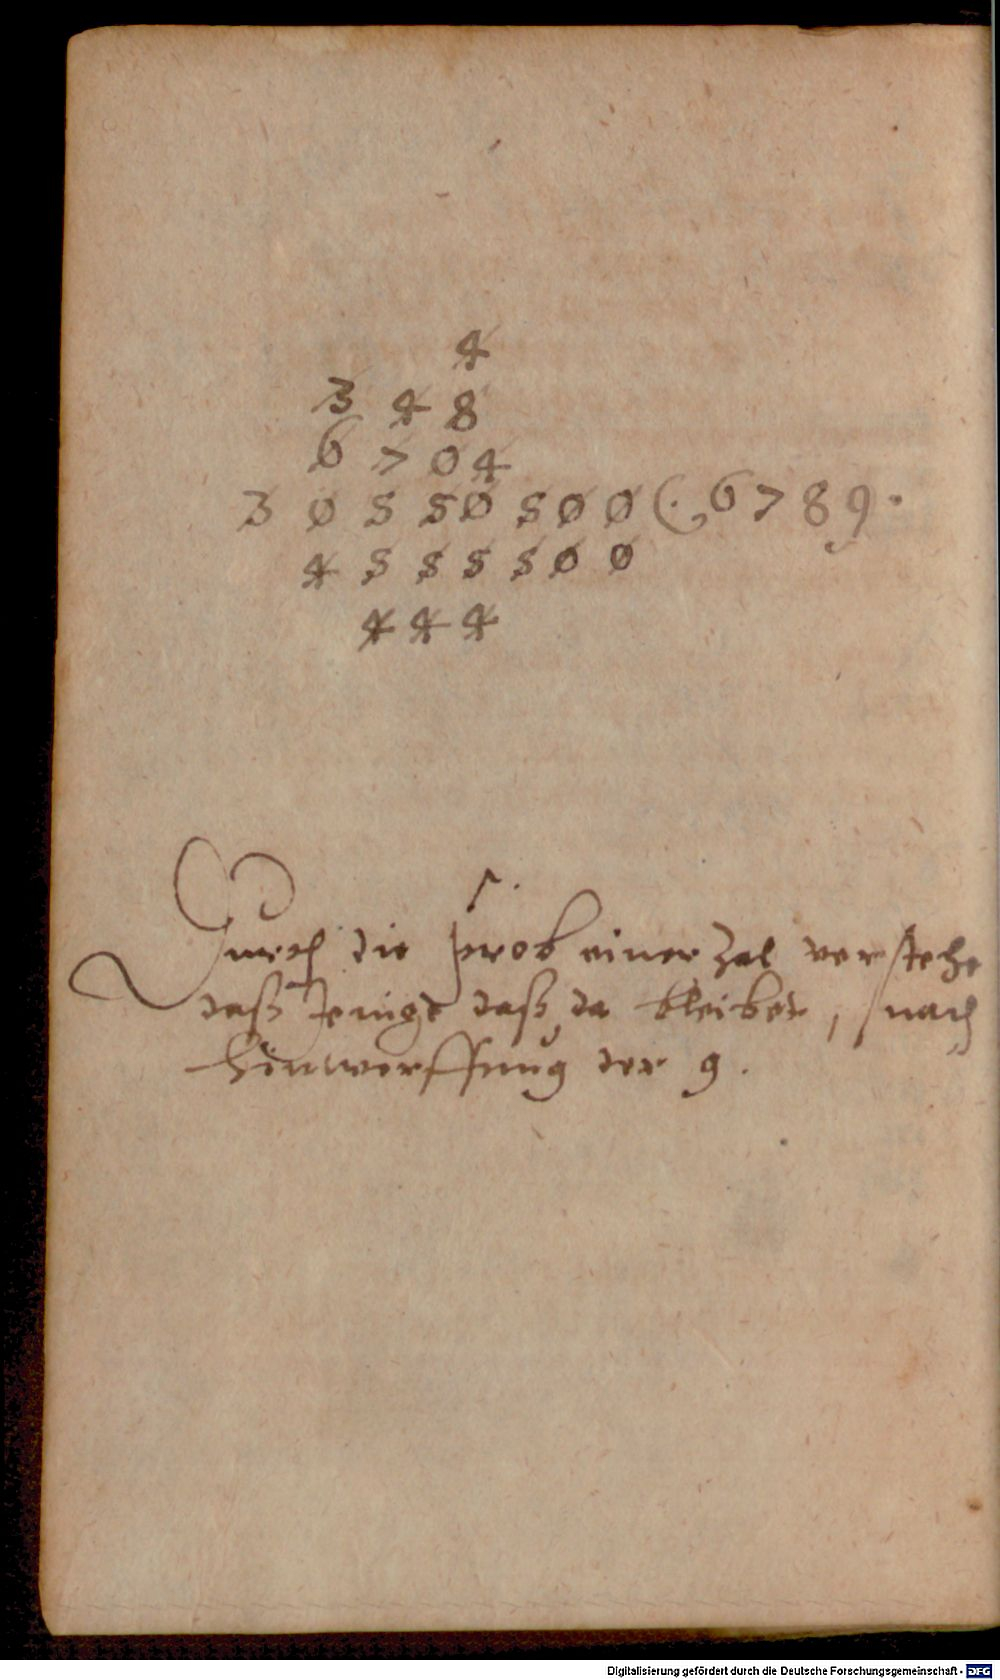 4
3 4 8
6 7 0 4
3 0 5 5 0 5 0 0 (. 6 7 8 9 .
4 5 5 5 5 0 0
4 4 4
Durch die prob einer zal verstehe
daß Jenige daß da bleibet, nach
hinwerffung der 9.
Digitalisierung gefördert durch die Deutsche Forschungsgemeinschaft - DFG